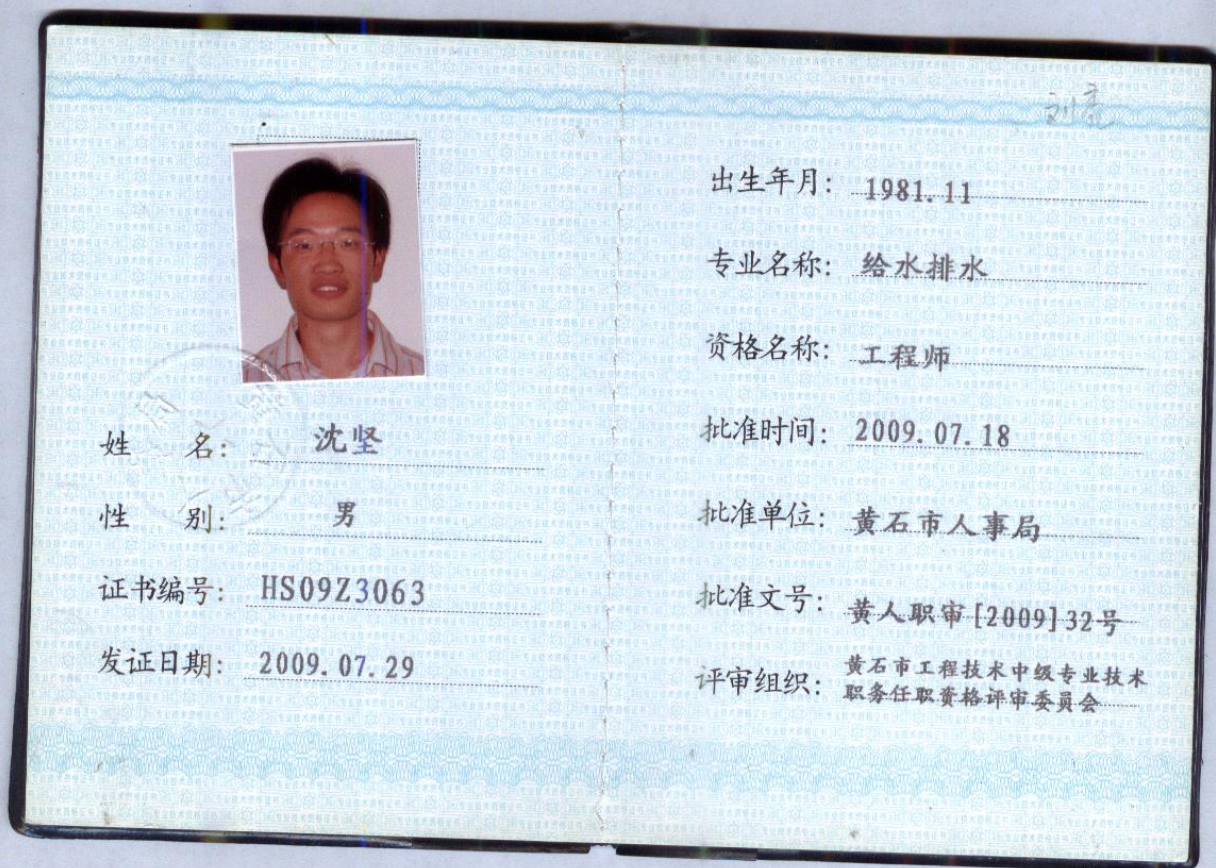 姓 名: 沈坚
性 别: 男
证书编号: HS09Z3063
发证日期: 2009.07.29
出生年月: 1981.11
专业名称: 给水排水
资格名称: 工程师
批准时间: 2009.07.18
批准单位: 黄石市人事局
批准文号: 黄人职审[2009]32号
评审组织: 黄石市工程技术中级专业技术
职务任职资格评审委员会